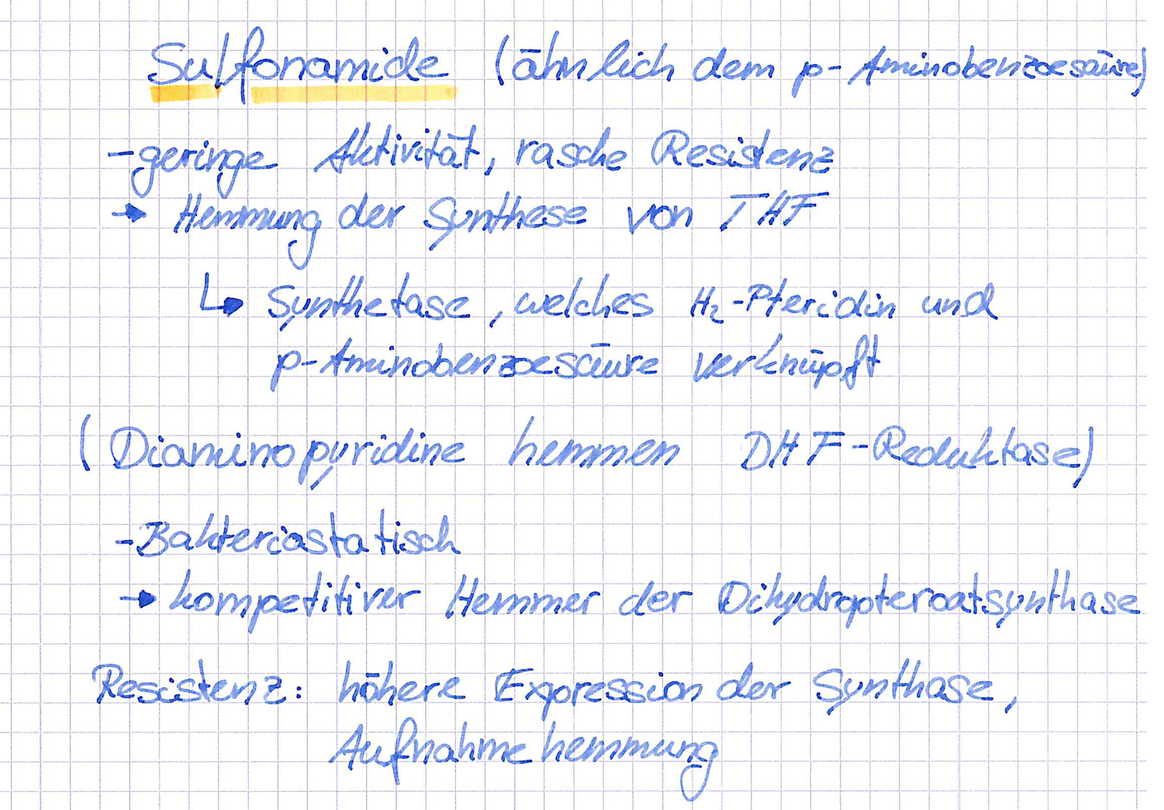 Sulfonamide (ähnlich dem p-Aminobenzoesäure)
- geringe Aktivität, rasche Resistenz
→ Hemmung der Synthese von THF
↳ Synthetase, welches H₂-Pteridin und
p-Aminobenzoesäure verknüpft
(Diaminopyridine hemmen DHF-Reduktase)
- Bakteriostatisch
→ kompetitiver Hemmer der Dihydropteroatsynthase
Resistenz: höhere Expression der Synthase,
Aufnahmehemmung